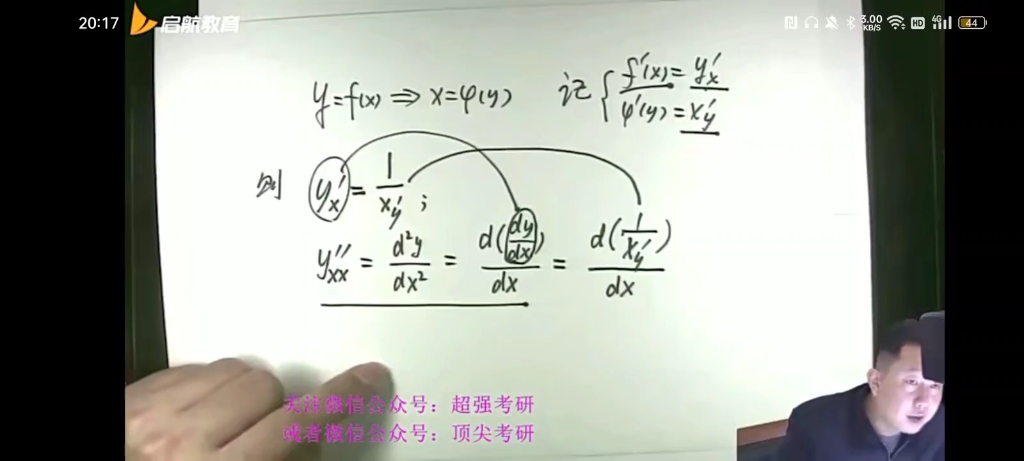 20:17 启航教育 3.00 KB/S HD 4G 44
y=f(x) ⇒ x=φ(y) 记 { f'(x)=y'ₓ
φ'(y)=x'ᵧ
则 y'ₓ = 1/x'ᵧ ;
y''ₓₓ = d²y/dx² = d(dy/dx)/dx = d(1/x'ᵧ)/dx
关注微信公众号：超强考研
或者微信公众号：顶尖考研